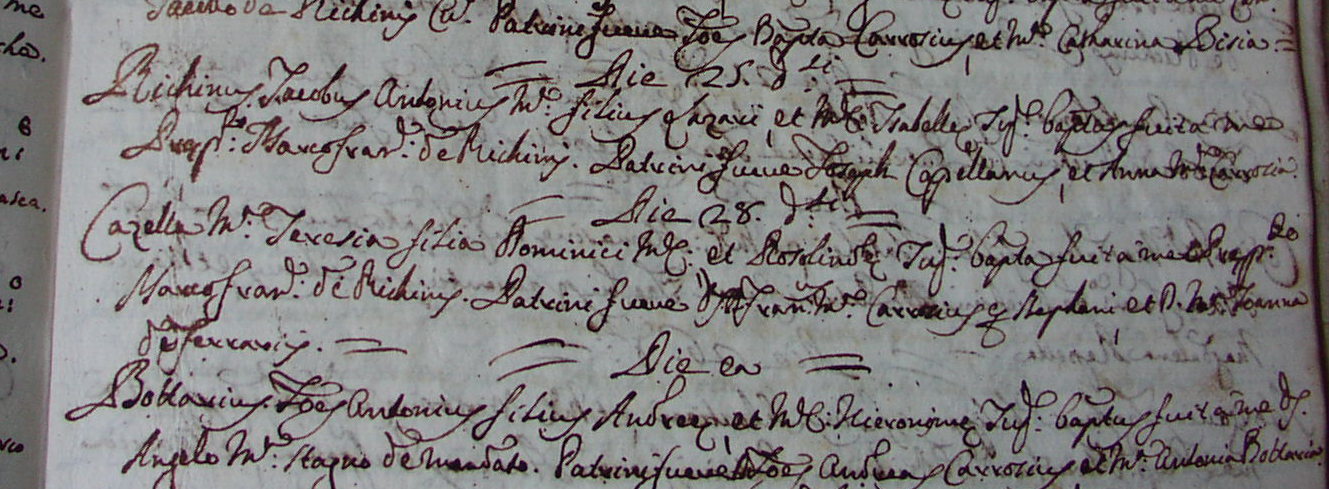 Jacobo de Richinis Cu. Patrini fuere Joes Bapta Carrosius, et Ma. Catharina Bisia =
= Die 25. dti =
Richinus Jacobus Antonius Ma. filius Lazari, et M. Isabelle Jug. baptus fuit a me
Marcofran. de Richinis. Patrini fuere Joseph Capellanus, et Anna Ma. Carrosia.
= Die 28. dti =
Cazella Ma. Teresia filia Dominici M. et Rosolinde Jug. bapta fuit a me
Marcofran. de Richinis. Patrini fuere Fran. Ma. Carrosius q Stephani et D. Ma. Joanna
de Ferrariis. =
= Die ea =
Bottarius Joes Antonius filius Andree, et M. Hieronime Jug. baptus fuit a me D.
Angelo Ma. Stagno de mandato. Patrini fuere Joes Andreas Carrosius et Ma. Antonia Bottaria